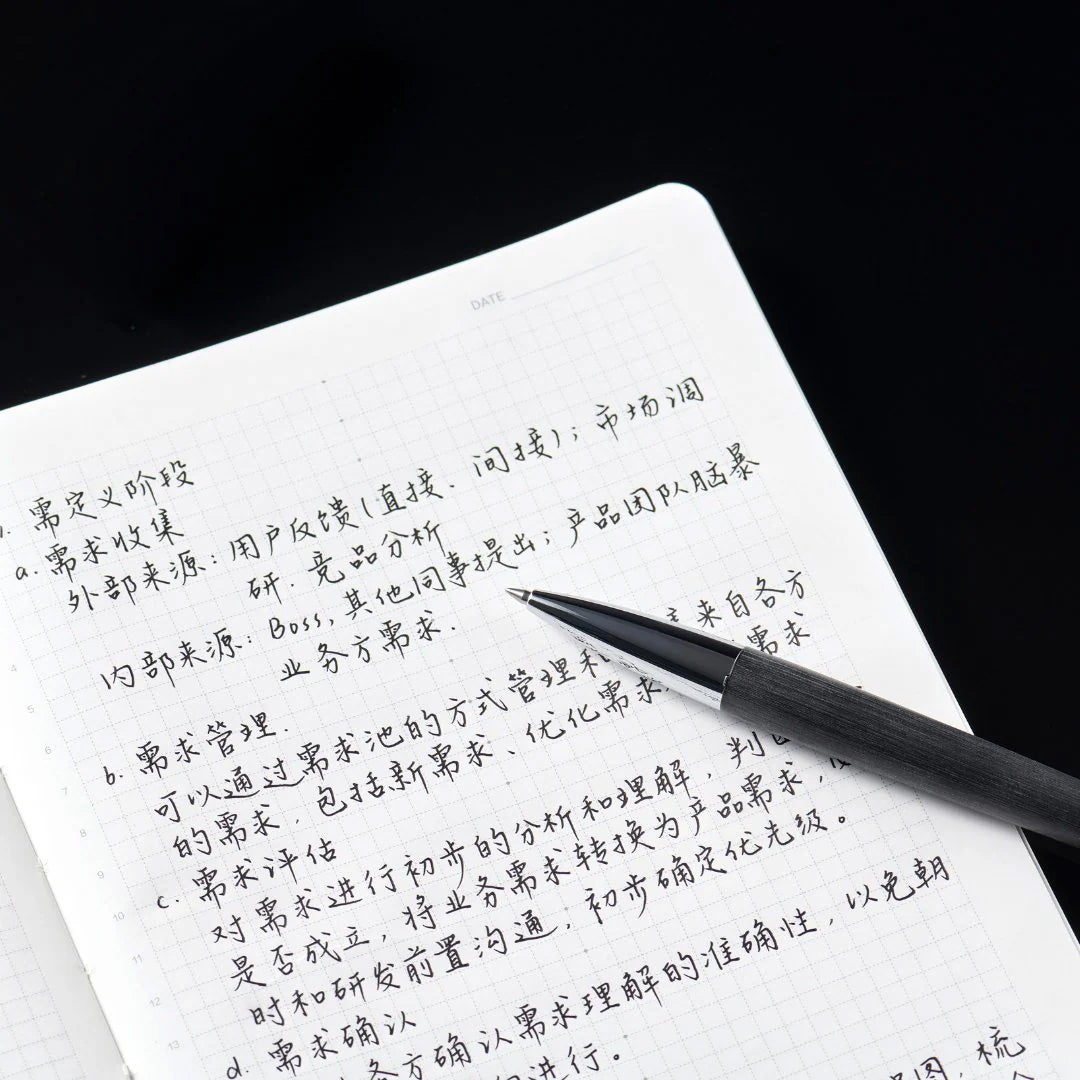 DATE
需定义阶段
a. 需求收集
外部来源：用户反馈（直接、间接）；市场调
研．竞品分析
内部来源：Boss，其他同事提出；产品团队脑暴
业务方需求．
b. 需求管理．
可以通过需求池的方式管理和 来自各方
的需求．包括新需求、优化需求 需求
c. 需求评估
对需求进行初步的分析和理解，判
是否成立，将业务需求转换为产品需求，
时和研发前置沟通，初步确定优先级。
d. 需求确认
各方确认需求理解的准确性，以免朝
进行。
图，梳
4
5
6
7
8
9
10
11
12
13